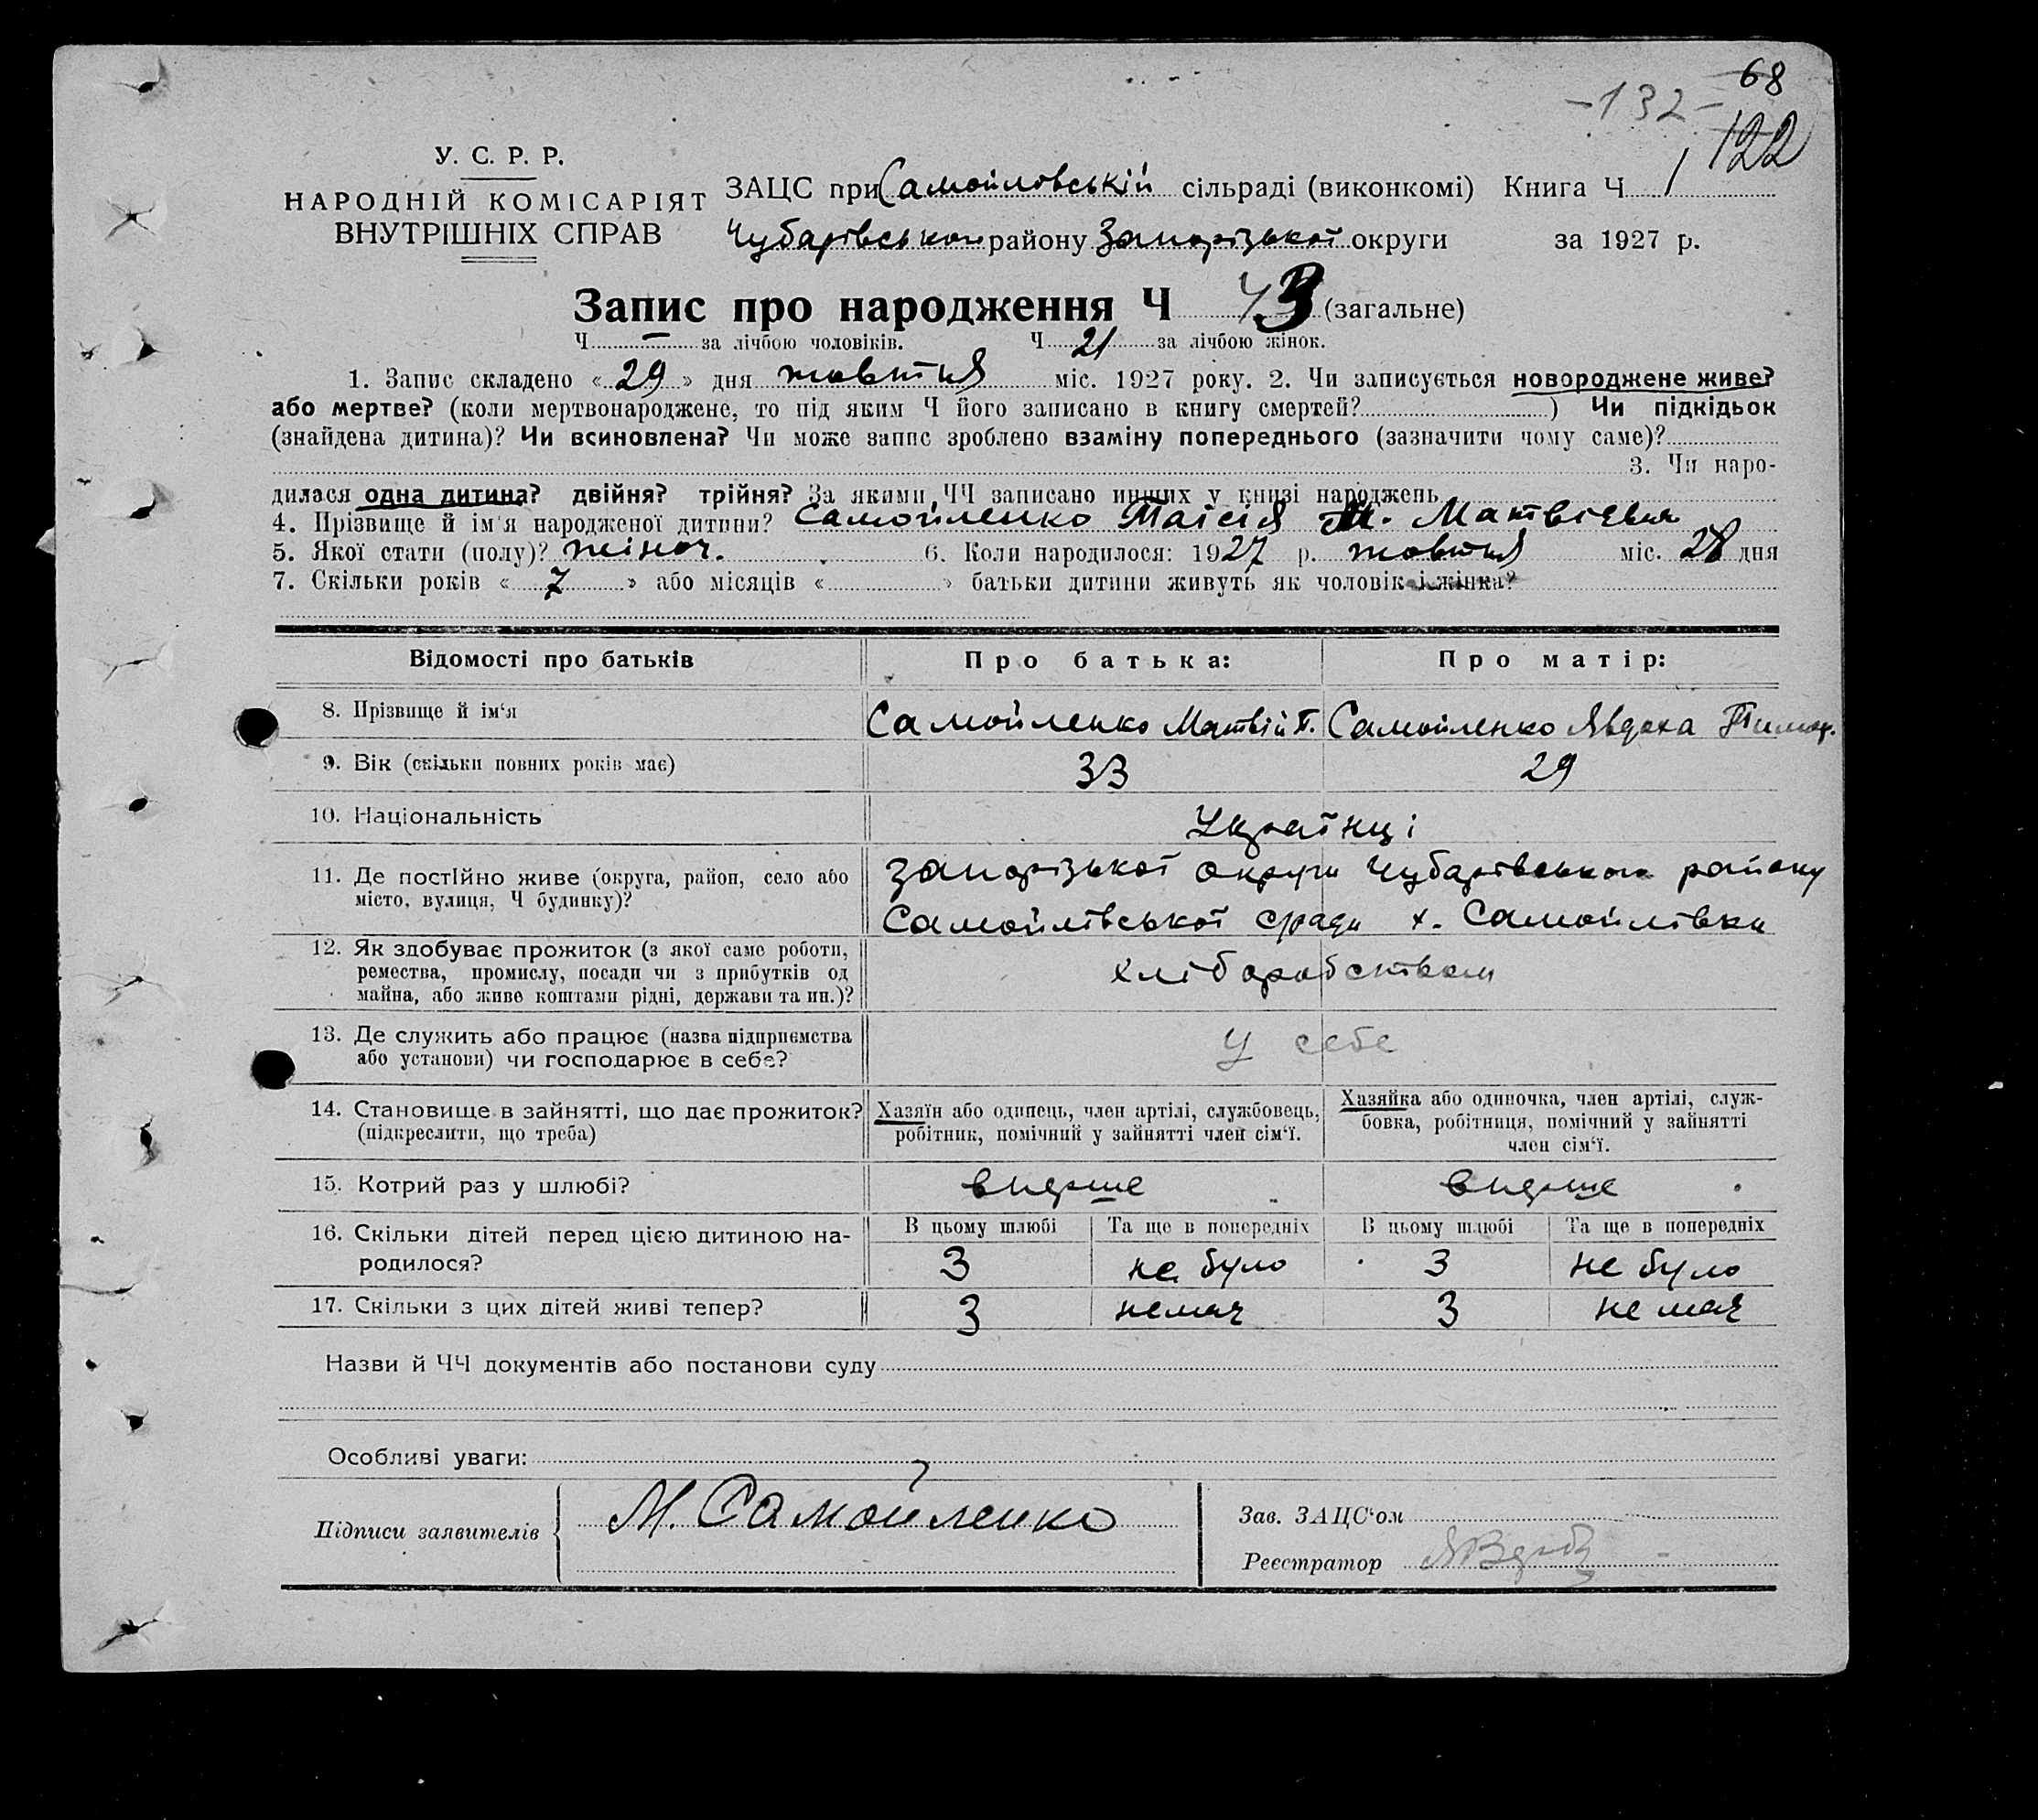 68
-132-
122
У. С. Р. Р.
НАРОДНІЙ КОМІСАРІЯТ
ВНУТРІШНІХ СПРАВ
ЗАЦС при Самойловській сільраді (виконкомі) Книга Ч 1
Чубарівського району Запорізької округи за 1927 р.
Запис про народження Ч 43 (загальне)
Ч — за лічбою чоловіків. Ч 21 за лічбою жінок.
1. Запис складено « 29 » дня жовтня міс. 1927 року. 2. Чи записується новороджене живе?
або мертве? (коли мертвонароджене, то під яким Ч його записано в книгу смертей? ) Чи підкідьок
(знайдена дитина)? Чи всиновлена? Чи може запис зроблено взаміну попереднього (зазначити чому саме)?
3. Чи наро-
дилася одна дитина? двійня? трійня? За якими ЧЧ записано инших у книзі народжень
4. Прізвище й ім'я народженої дитини? Самойленко Таїсія Матвієвна
5. Якої стати (полу)? жіноч. 6. Коли народилося: 1927 р. жовтня міс. 28 дня
7. Скільки років « 7 » або місяців « » батьки дитини живуть як чоловік і жінка?
Відомості про батьків Про батька: Про матір:
8. Прізвище й ім'я Самойленко Матвій Т. Самойленко Явдоха Тимоф.
9. Вік (скільки повних років має) 33 29
10. Національність Українці
11. Де постійно живе (округа, район, село або
місто, вулиця, Ч будинку)?
Запорізької округи Чубарівського району
Самойлівської сради х. Самойлівки
12. Як здобуває прожиток (з якої саме роботи,
ремества, промислу, посади чи з прибутків од
майна, або живе коштами рідні, держави та ин.)?
хліборобством
13. Де служить або працює (назва підприємства
або установи) чи господарює в себе?
у себе
14. Становище в зайнятті, що дає прожиток?
(підкреслити, що треба)
Хазяїн або одинець, член артілі, службовець,
робітник, помічний у зайнятті член сім'ї.
Хазяйка або одиночка, член артілі, служ-
бовка, робітниця, помічний у зайнятті
член сім'ї.
15. Котрий раз у шлюбі? вперше вперше
16. Скільки дітей перед цією дитиною на-
родилося?
В цьому шлюбі Та ще в попередніх В цьому шлюбі Та ще в попередніх
3 не було 3 не було
17. Скільки з цих дітей живі тепер? 3 немає 3 немає
Назви й ЧЧ документів або постанови суду
Особливі уваги:
Підписи заявителів М. Самойленко
Зав. ЗАЦС'ом
Реєстратор